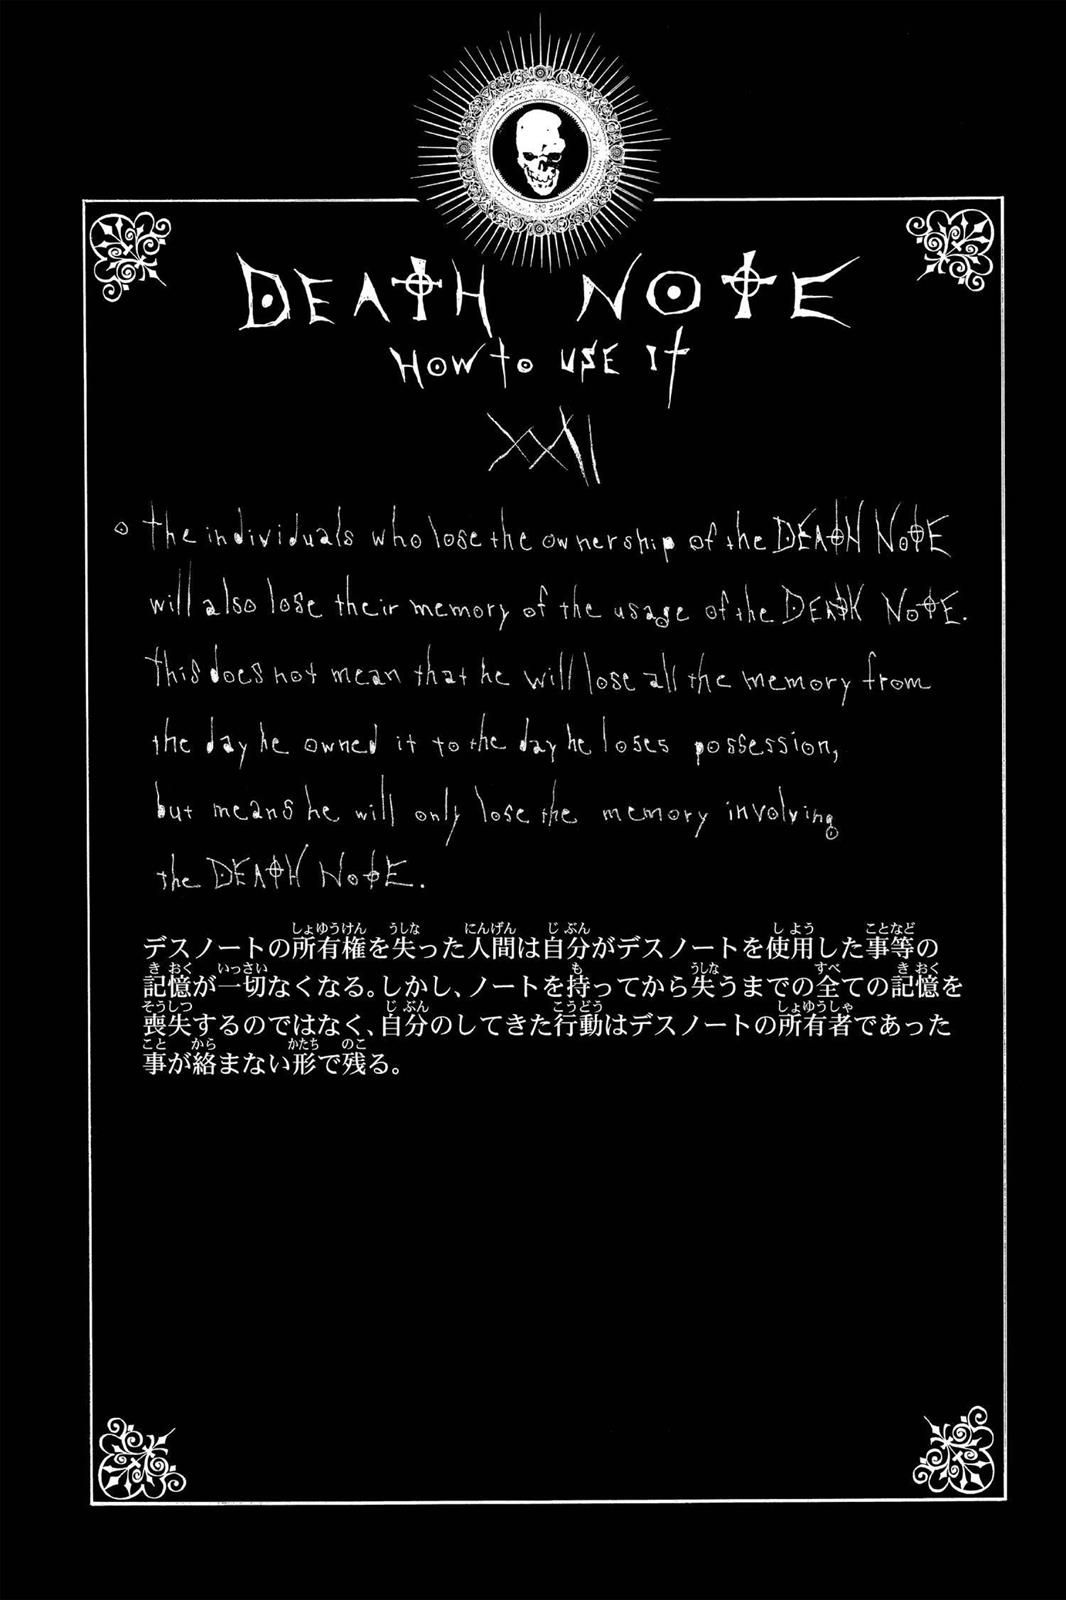 DEATH NOTE
HOW to USE It
XXII
○ the individuals who lose the ownership of the DEATH NOTE
will also lose their memory of the usage of the DEATH NOTE.
This does not mean that he will lose all the memory from
the day he owned it to the day he loses possession,
but means he will only lose the memory involving
the DEATH NOTE.
しょゆうけん うしな にんげん じ ぶん し よう ことなど
デスノートの所有権を失った人間は自分がデスノートを使用した事等の
き おく いっさい も うしな すべ き おく
記憶が一切なくなる。しかし、ノートを持ってから失うまでの全ての記憶を
そうしつ じ ぶん こうどう しょゆうしゃ
喪失するのではなく、自分のしてきた行動はデスノートの所有者であった
こと から かたち のこ
事が絡まない形で残る。